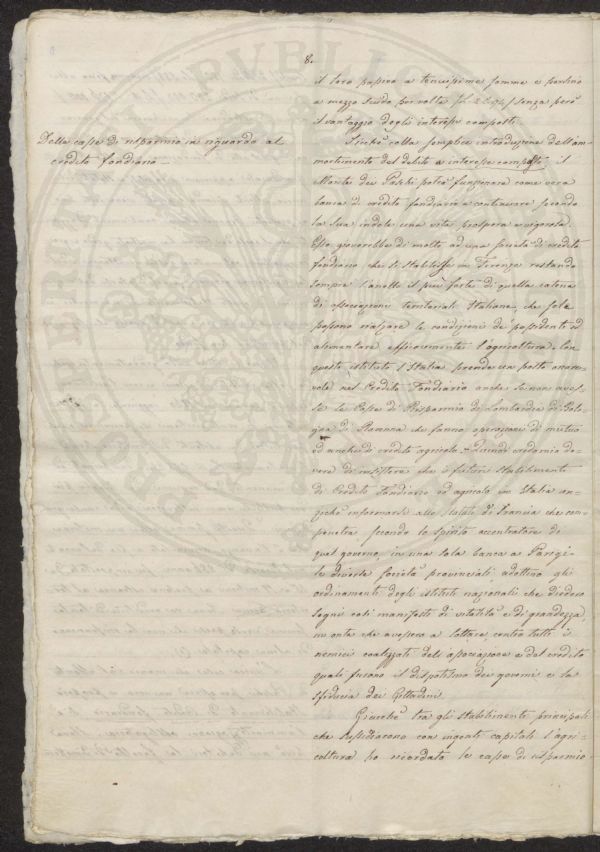 8.
il loro passivo a tenuissime somme e perfino
a mezzo scudo per volta senza però
il vantaggio degli interessi composti.
Della casse di risparmio in riguardo al
credito fondiario
Sicchè colla semplice introduzione dell'am-
mortimento del debito a interesse composto il
Monte dei Paschi potrà funzionare come vera
banca di credito fondiario e continuare secondo
la sua indole una vita prospera e vigorosa.
Esso gioverebbe di molto ad una società di credito
fondiario che si stabilisse in Firenze restando
sempre l'anello il più forte di quella catena
di associazioni territoriali Italiane, che sole
possono rialzare le condizioni de' possidenti ed
alimentare efficacemente l'agricoltura. Con
questi istituti l'Italia prende un posto onore-
vole nel Credito Fondiario anche se non aves-
se le Casse di Risparmio di Lombardia di Bolo-
gna di Ravenna che fanno operazioni di mutuo
ed anche di credito agricolo. Quindi crediamo do-
vere di insistere che i futuri stabilimenti
di Credito Fondiario ed agricolo in Italia an-
zichè informarsi alle statuti di Francia che con-
penetra secondo lo spirito accentratore di
quel governo, in una sola banca a Parigi
le diverse Società provinciali, adottino gli
ordinamenti degli istituti nazionali che diedero
segni così manifesti di vitalità e di grandezza,
in onta che avessero a lottare contro tutti i
nemici coalizzati dell'associazione e del credito
quali furono il dispotismo dei governi e la
sfiducia dei Cittadini.
Giacchè tra gli stabilimenti principali
che sussidiarono con ingenti capitali l'agri-
coltura ho ricordato le casse di risparmio